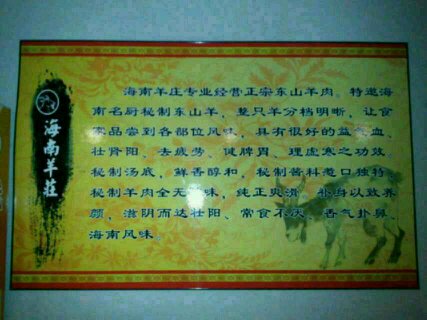 海南羊莊
海南羊庄专业经营正宗东山羊肉。特邀海
南名厨秘制东山羊，整只羊分档明晰，让食
家品尝到各部位风味，具有很好的益气血、
壮肾阳、去疲劳。健脾胃、理虚寒之功效。
秘制汤底，鲜香醇和，秘制酱料惹口独特
秘制羊肉全无 味，纯正爽滑 补身以致养
颜，滋阴而达壮阳、常食不厌、香气扑鼻、
海南风味。